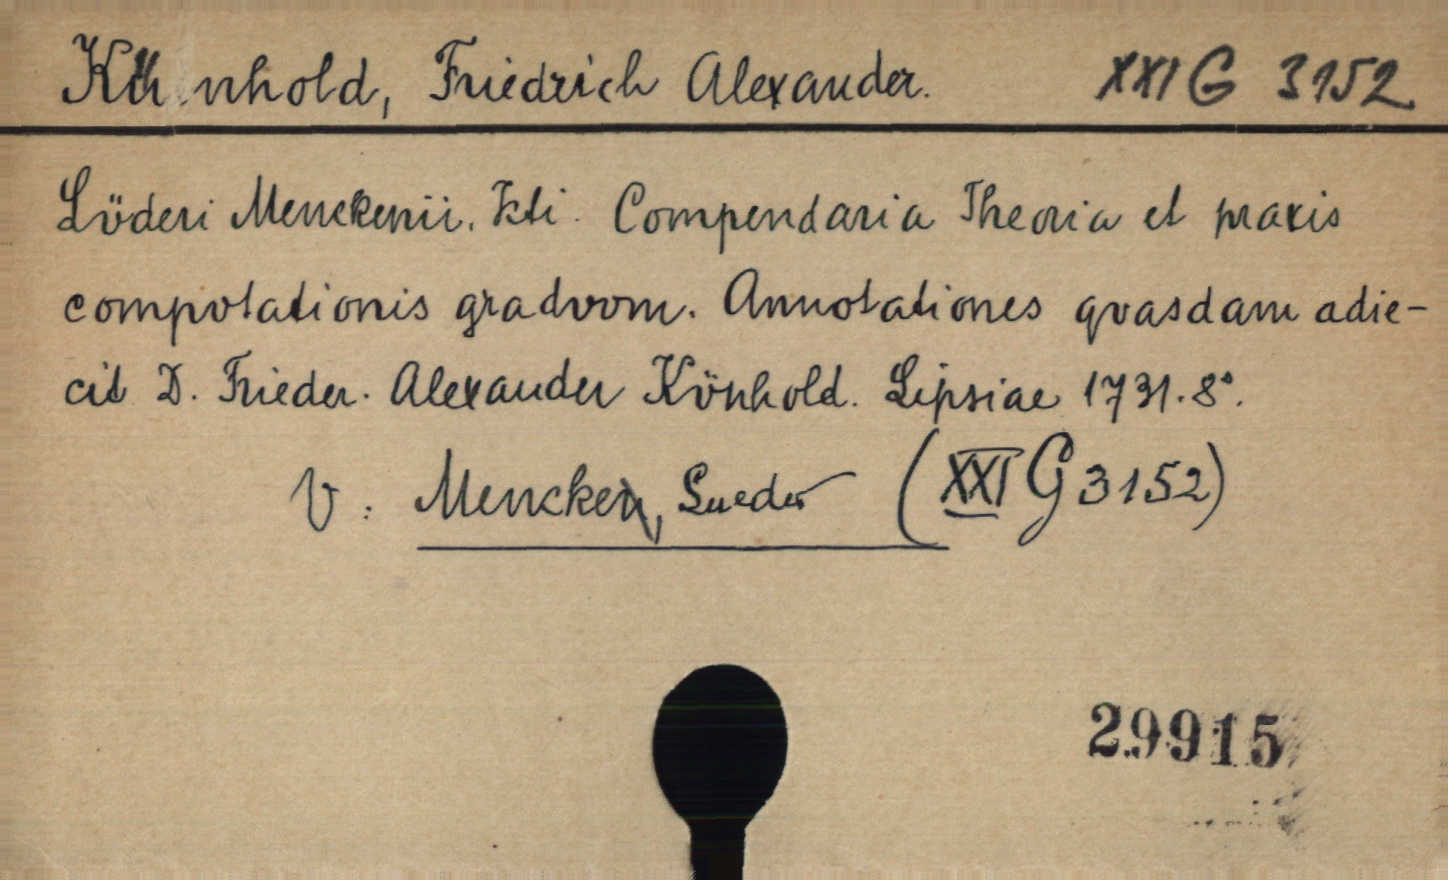 Künhold, Friedrich Alexander. XXI G 3152
Lüderi Menckenii. Icti. Compendaria Theoria et praxis
compvtationis gradvvm. Annotationes qvasdam adie-
cit D. Frieder. Alexander Künhold. Lipsiae 1731. 8°.
V: Mencken, Lueder (XXI G 3152)
29915